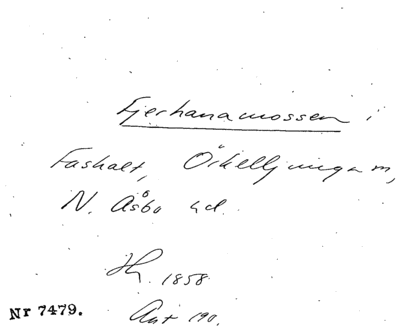 Fjerhanamossen i
Fashalt, Örkelljunga sn,
N. Åsbo hd.
1858
Nr 7479.
Ant 190.